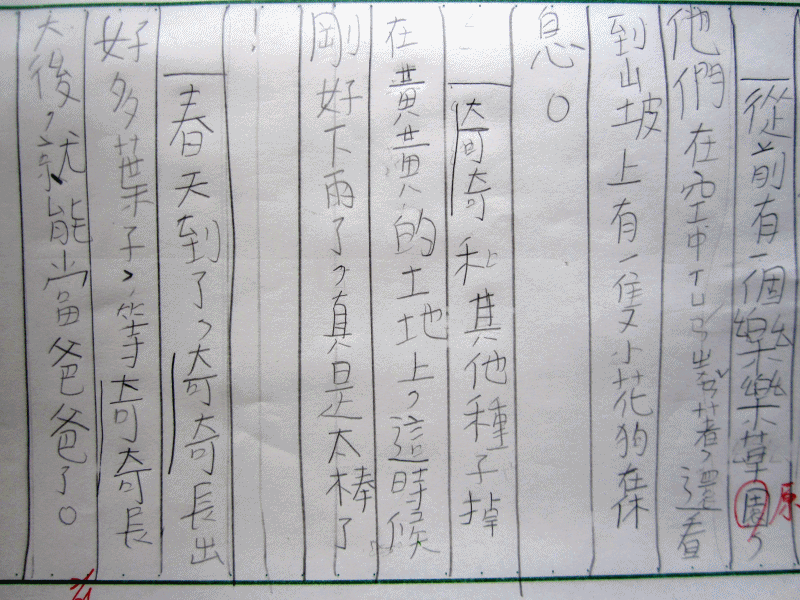 從前有一個樂樂草園，
原
他們在空中著，還看
到山坡上有一隻小花狗在休
息。
奇奇和其他種子掉
在黃黃的土地上，這時候
剛好下雨了，真是太棒了
！
春天到了，奇奇長出
好多葉子，等奇奇長
大後，就能當爸爸了。